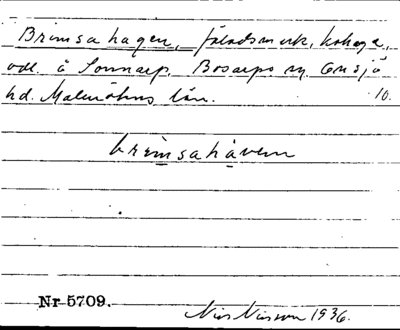 Brimsahagen, fäladsmark, kohage,
odl. å Sonnarp, Bosarps sn. Onsjö
hd. Malmöhus län. 10.
brimsahàven
Nr 5709. Nils Nilsson 1936.